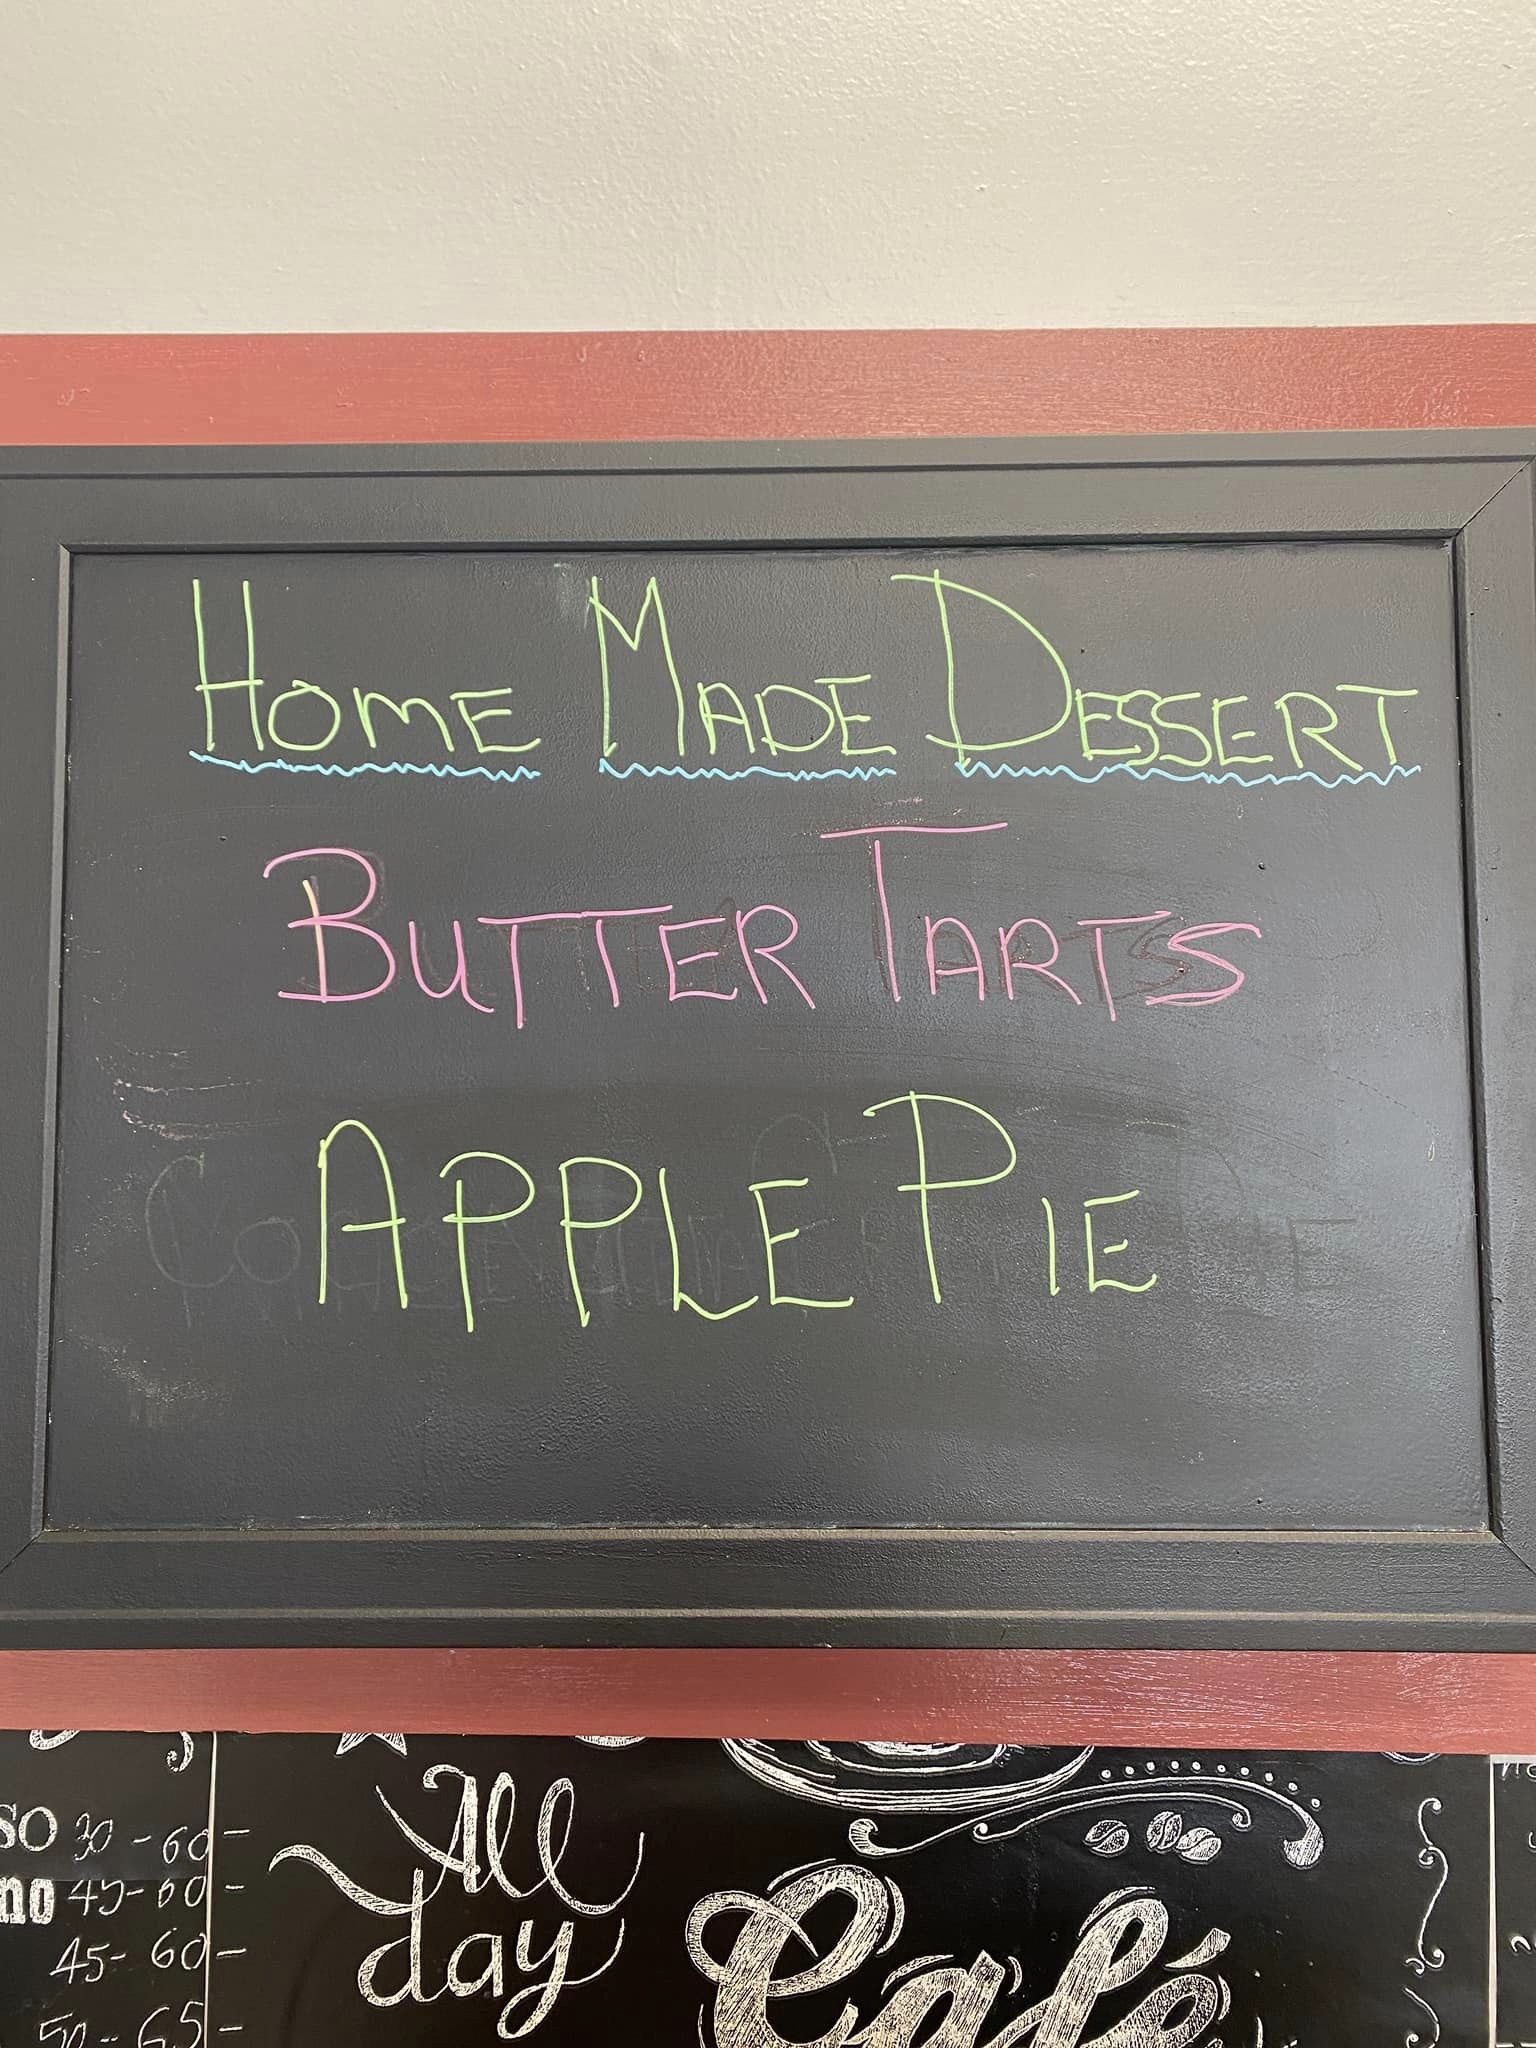 HOME MADE DESSERT
BUTTER TARTS
APPLE PIE
SO 30 - 60 -
no 45 - 60 -
45 - 60 -
50 - 65 -
All
day
Café